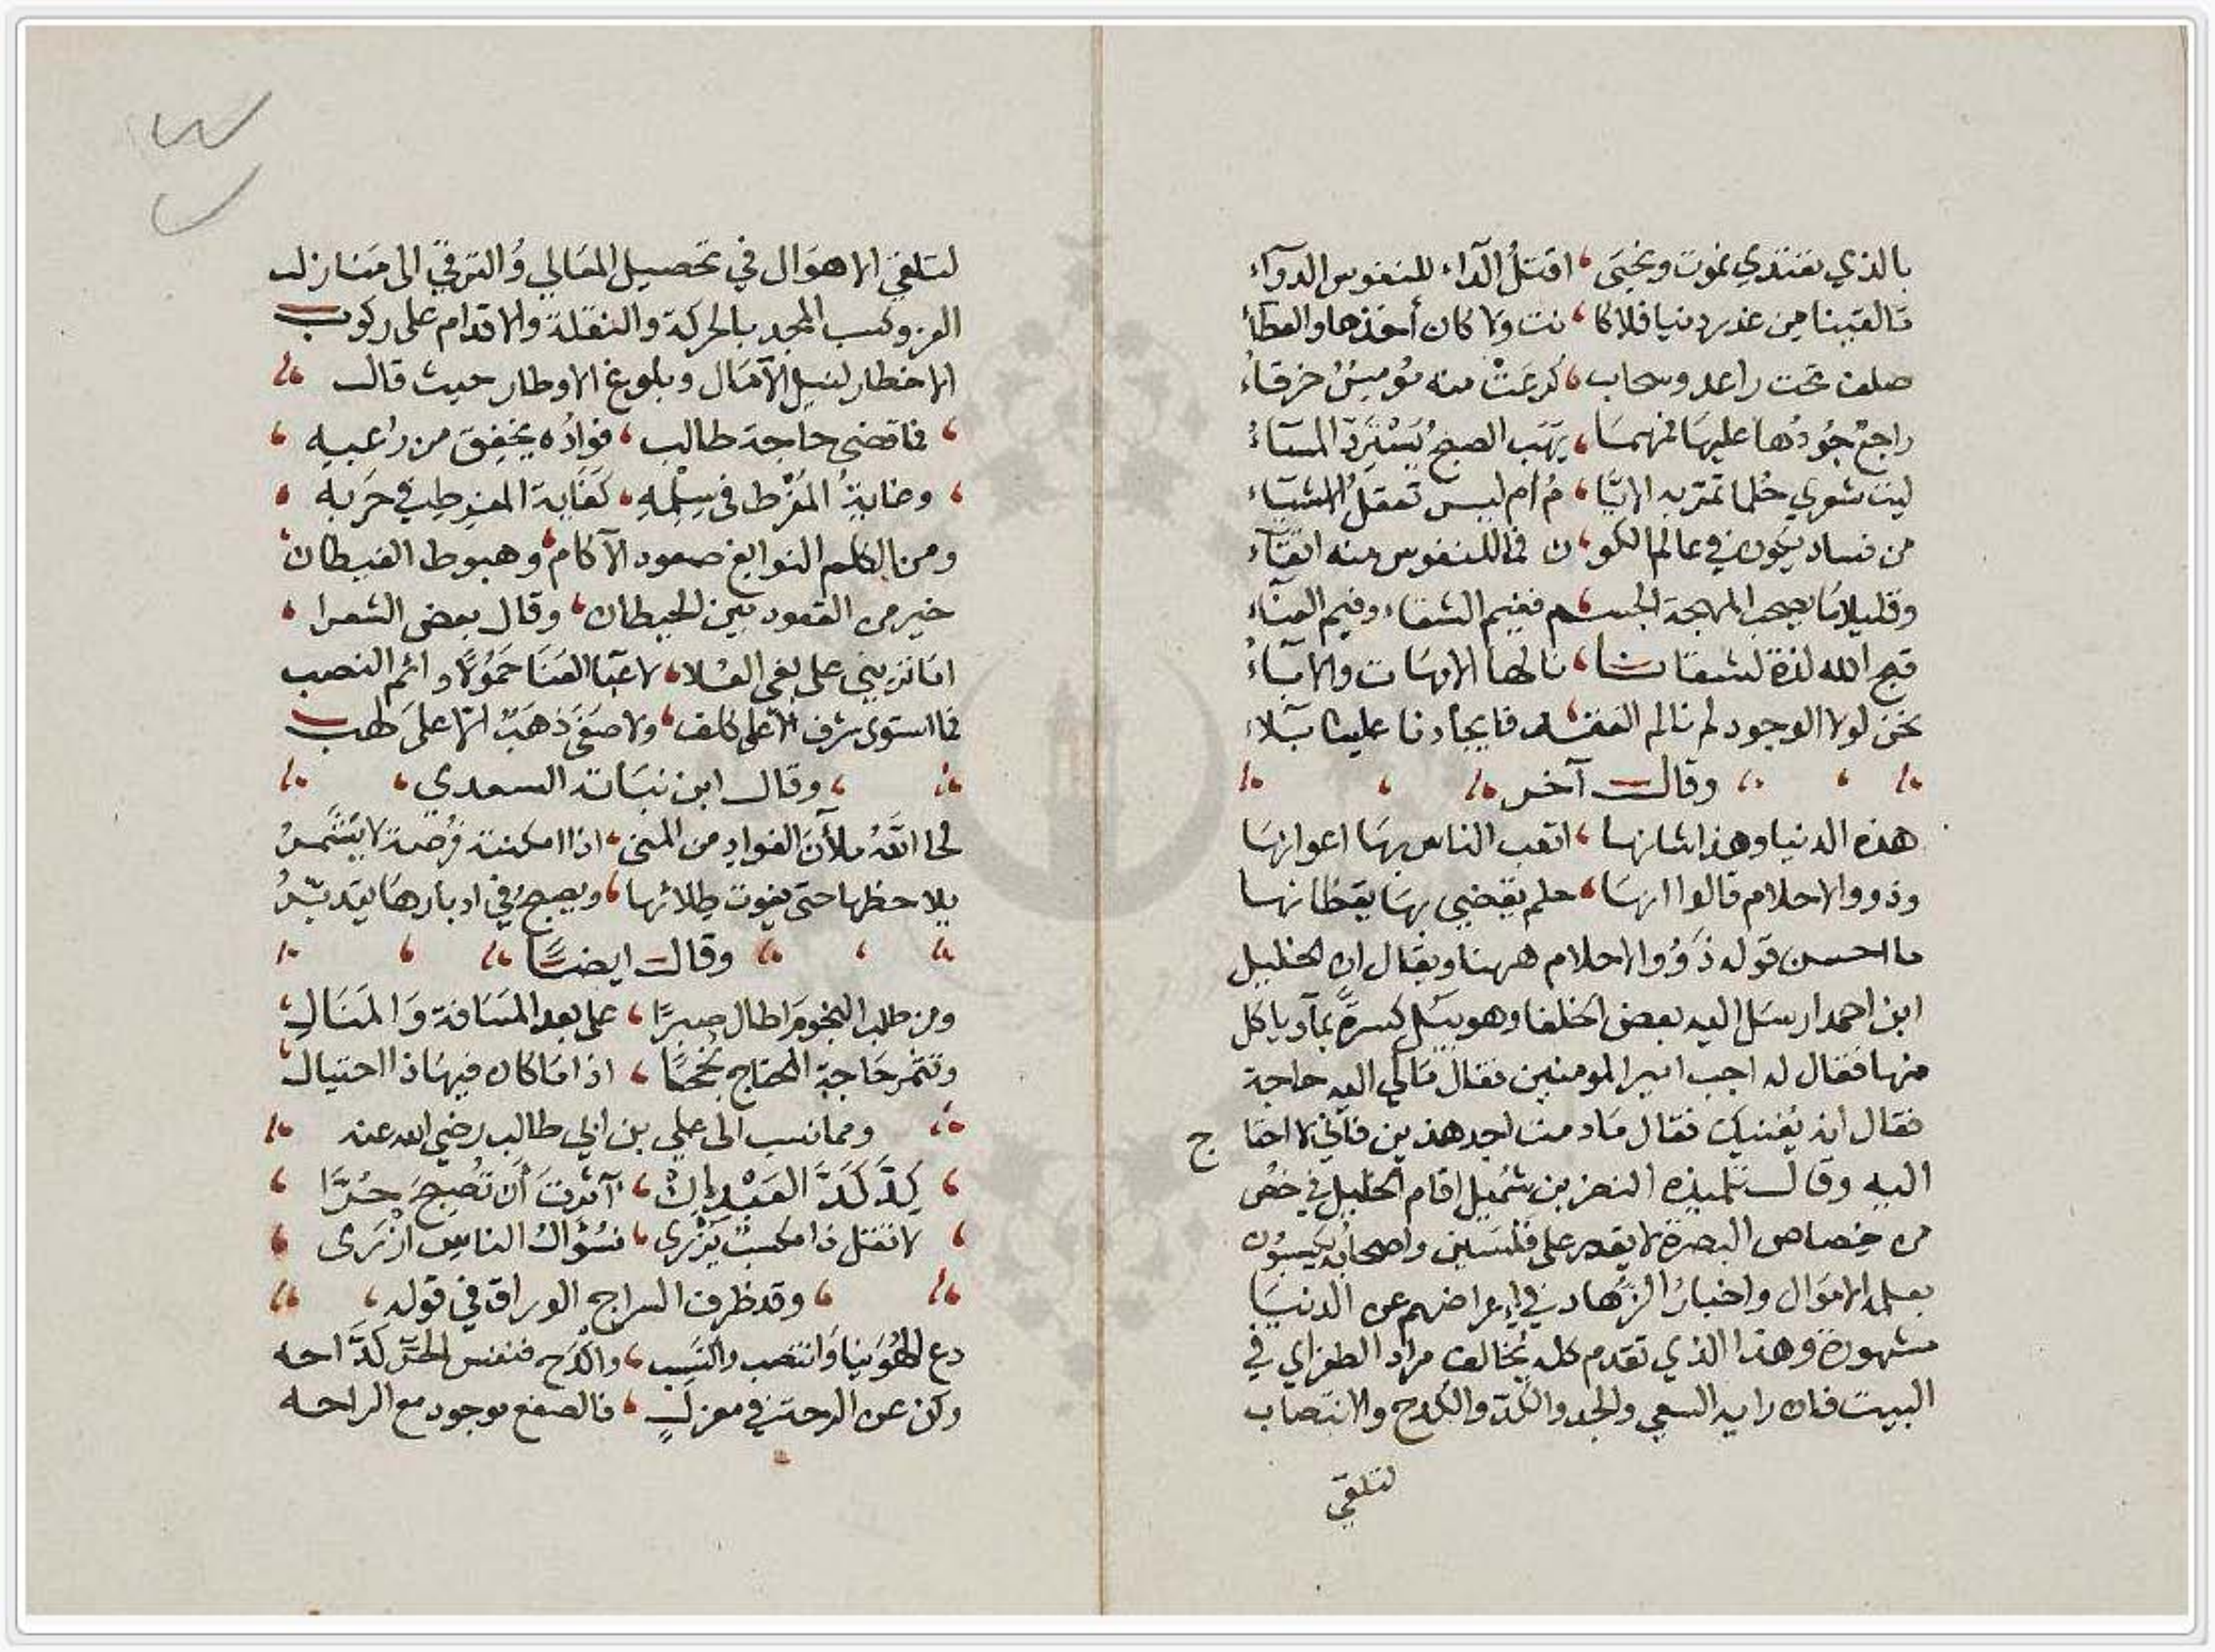 بالذي نغتدي نموت ونحيى ، اقتل الداء للنفوس الدوآء
مالقينا من غدر دنيا فلا كا ، نت ولا كان أخذها والعطآء
صلف تحت راعد وسحاب ، كرعت منه مومس خرقاء
راجع جودها عليها فمهما ، يهب الصبح يسترد المسآء
ليت شعري حلما تمر به الايا ، م ام ليس تعقل الاشياء
من فساد يكون في عالم الكو ، ن فما للنفوس منه اتقآء
وقليلا ما يصحب المهجة الجسم ففيم الشقاء وفيم العنآء
قبح الله لذة لشقانا ، نالها الامهات والابآء
نحن لولا الوجود لم نالم الفقد فايجادنا علينا بلاء
وقال آخر
هذه الدنيا وهذا شانها ، اتعب الناس بها اعوانها
وذوو الاحلام قالوا انها ، حلم يقضي بها يقظانها
ما احسن قوله ذوو الاحلام ههنا ويقال ان الخليل
ابن احمد ارسل اليه بعض الخلفا وهو يبل كسرة بمآء وياكل
منها فقال له اجب امير المومنين فقال مالي اليه حاجة
فقال انه يغنيك فقال ما دمت اجد هذين فاني لا احتا ج
اليه وقال تلميذه النضر بن شميل اقام الخليل في خص
من خصاص البصرة لا يقدر على فلسين واصحابه يكسبون
بعلمه الاموال واخبار الزهاد في اعراضهم عن الدنيا
مشهورة وهذا الذي تقدم كله يخالف مراد الطغراي في
البيت فان رايه السعي والجد والكد والكدح والانتصاب
لتلقي
لتلقي الاهوال في تحصيل المعالي والترقي الى منازل
العز وكسب المجد بالحركة والنقلة والاقدام على ركوب
الاخطار لنيل الآمال وبلوغ الاوطار حيث قال
فما قضى حاجة طالب ، فواده يخفق من رعبه
وغاية المفرط في سلمه ، كغاية المفرط في حربه
ومن الكلم النوابغ صعود الآكام ، وهبوط الغيطان
خير من القعود بين الحيطان ، وقال بعض الشعرا
اما تريني على بغي العلا ، لاعبا العنا حمولا دائم النصب
فما استوى شرف الا على كلف ، ولا صفى ذهب الا على لهب
وقال ابن نباتة السعدي
لحا الله ملآن الفواد من المنى ، اذا امكنته فرصة لا يشمر
يلاحظها حتى يفوت طلائها ، ويصبح في ادبارها يتدبر
وقال ايضا
ومن طلب النجوم اطال صبرا ، على بعد المسافة والمنال
وتثمر حاجة المحتاج نجحا ، اذا ما كان فيها ذا احتيال
ومما نسب الى علي بن ابي طالب رضي الله عنه
كد كد العبد ان ، آثرت أن تصبح حرا
لا تقتل ذا مكسب يزرى ، فسؤال الناس ازرى
وقد ظرف السراج الوراق في قوله
دع الهوينا وانتصب واكتسب ، واكدح فنفس الحر كداحه
وكن عن الراحة في معزل ، فالصفع موجود مع الراحه